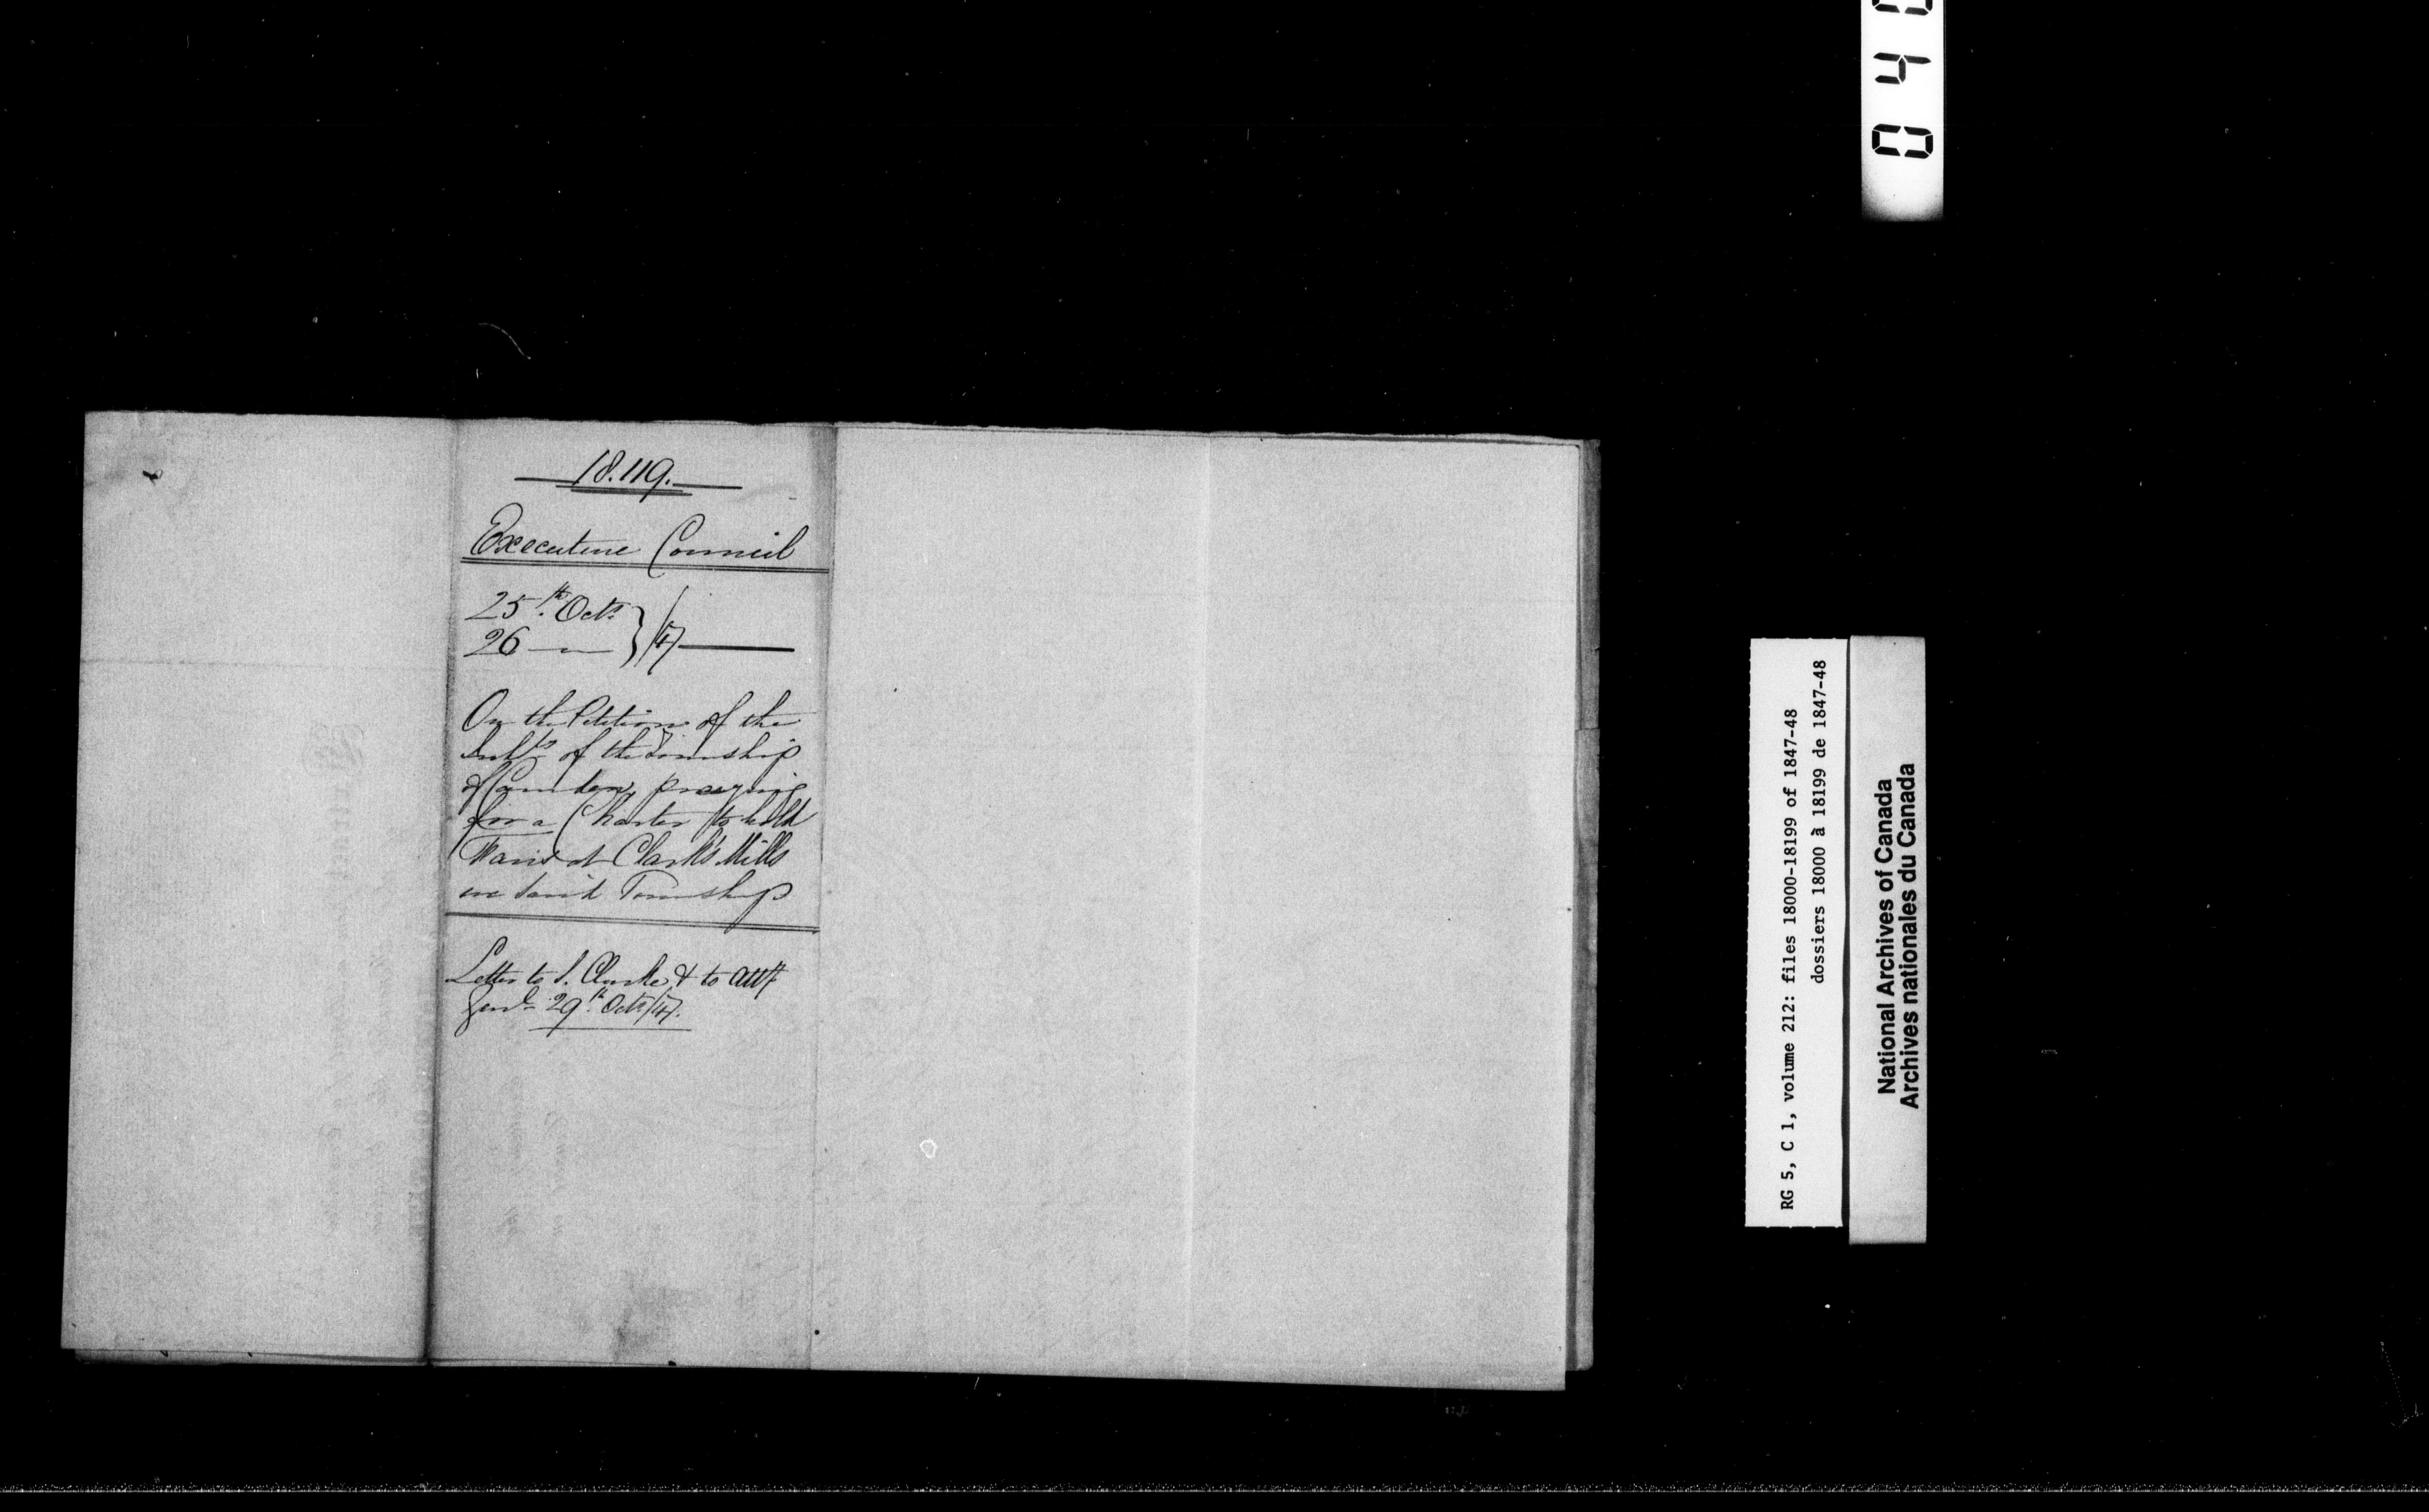 18.119.
Executive Council
25th Octr
26 — } /47
On the Petition of the
Inhts of the Township
of Camden, praying
for a Charter to hold
Fairs at Clark's Mills
in said Township
Letter to S. Clarke & to Atty
Genl 29th Octr/47.
040
RG 5, C 1, volume 212: files 18000-18199 of 1847-48
dossiers 18000 à 18199 de 1847-48
National Archives of Canada
Archives nationales du Canada